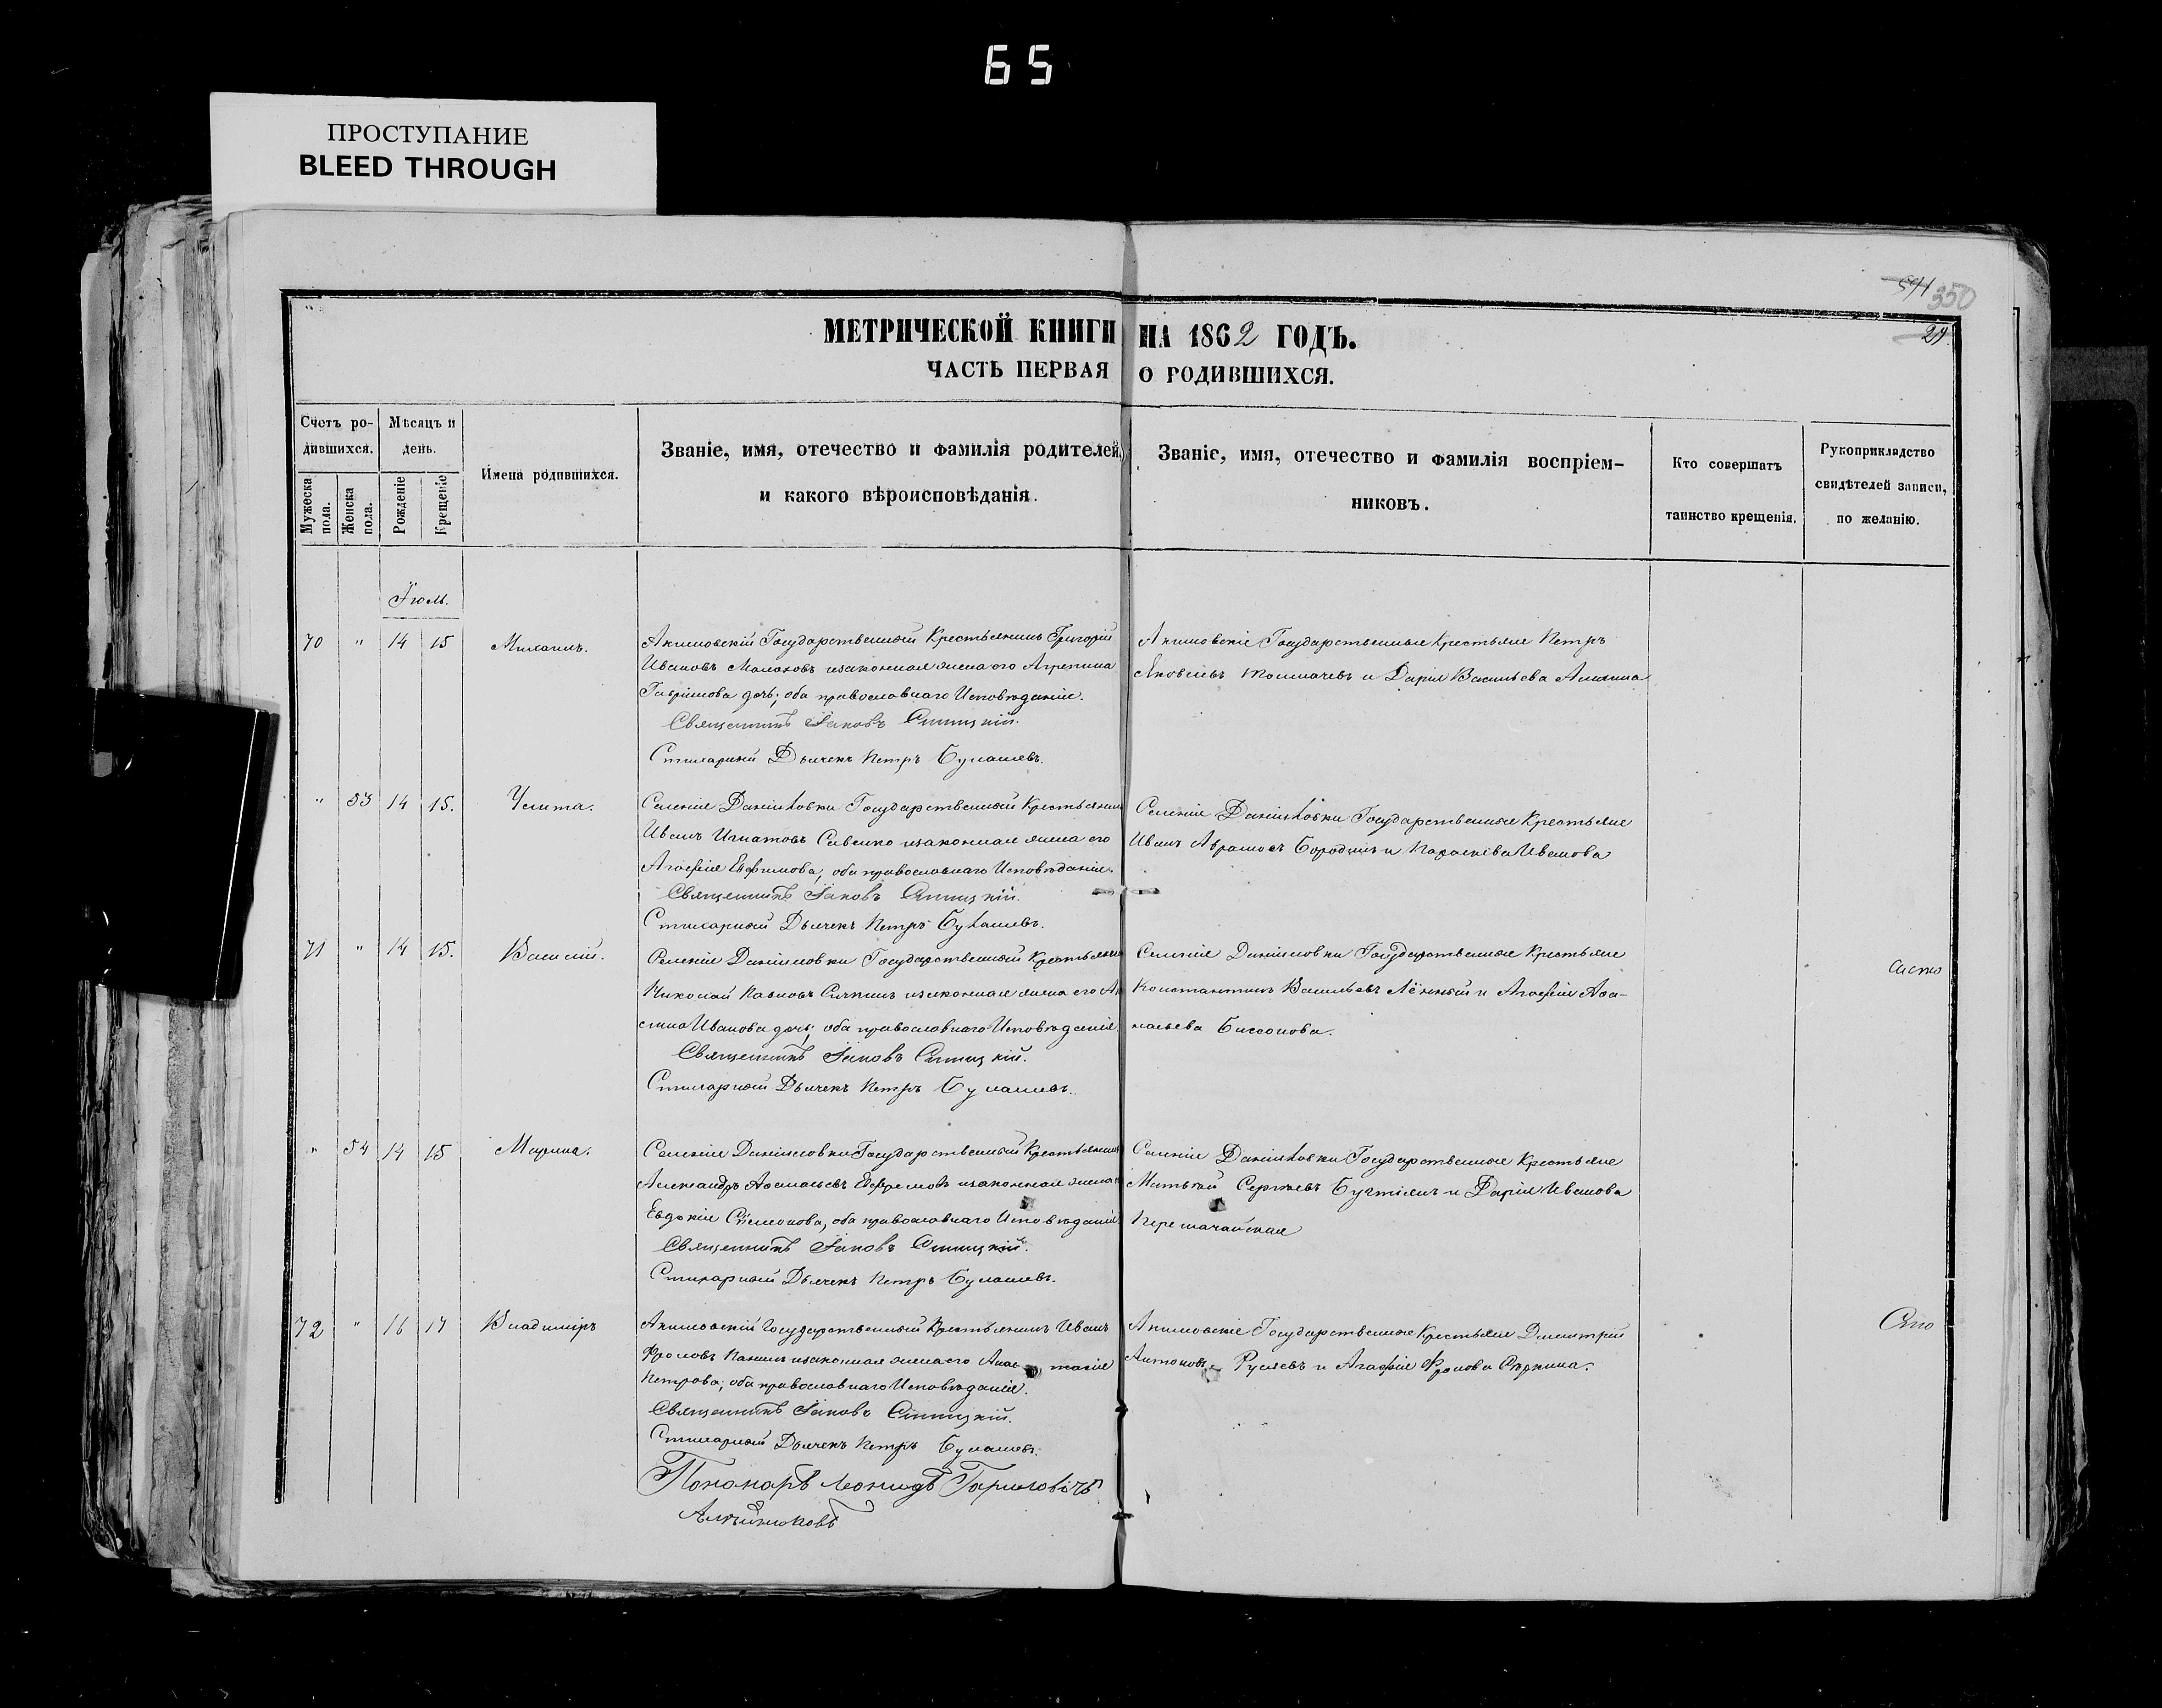 65
ПРОСТУПАНИЕ
BLEED THROUGH
591 350
29.
МЕТРИЧЕСКОЙ КНИГИ НА 1862 ГОДЪ.
ЧАСТЬ ПЕРВАЯ О РОДИВШИХСЯ.
Счетъ родившихся.
Мужеска пола.
Женска пола.
Мѣсяцъ и день.
Рожденіе
Крещеніе
Имена родившихся.
Званіе, имя, отечество и фамилія родителей,
и какого вѣроисповѣданія.
Званіе, имя, отечество и фамилія воспріем-
никовъ.
Кто совершатъ
таинство крещенія.
Рукоприкладство
свидѣтелей записи,
по желанію.
Іюль.
70 " 14 15 Михаилъ.
Акимовскій Государственный Крестьянинъ Григорій
Ивановъ Малаховъ изаконная жена его Агрепина
Гавріилова дочь; оба православнаго Исповѣданія.
Священникъ Іаковъ Синицкій.
Стихарный Дьячекъ Петръ Булашевъ.
Акимовскіе Государственные Крестьяне Петръ
Яковлевъ Толмачевъ и Дарія Васильева Алихина
" 53 14 15. Улита.
Селенія Даніиловки Государственный Крестьянинъ
Иванъ Игнатовъ Савенко изаконная жена его
Агафія Евфимова; оба православнаго Исповѣданія.
Священникъ Іаковъ Синицкій.
Стихарный Дьячекъ Петръ Булашевъ.
Селенія Даніиловки Государственные Крестьяне
Иванъ Аврамовъ Бородинъ и Парасківа Иванова
71 " 14 15. Василій.
Селенія Даніиловки Государственный Крестьянинъ
Николай Павловъ Сичкинъ изаконная жена его Ак
Иванова дочь; оба православнаго Исповѣданія.
Священникъ Іаковъ Синицкій.
Стихарный Дьячекъ Петръ Булашевъ.
Селенія Даніиловки Государственные Крестьяне
Константинъ Васильевъ и Агафія Афа-
насьева
" 54 14 15 Марина.
Селенія Даніиловки Государственный Крестьянинъ
Александръ Афанасьевъ Ефремовъ изаконная жена
Евдокія Симеонова, оба православнаго Исповѣданія
Священникъ Іаковъ Синицкій.
Стихарный Дьячекъ Петръ Булашевъ.
Селенія Даніиловки Государственные Крестьяне
Матвѣй Сергѣевъ и Дарія Иванова
72 " 16 17 Владиміръ
Акимовскій Государственный Крестьянинъ Иванъ
Фроловъ Панинъ изаконная жена его Анастасія
Петрова; оба православнаго Исповѣданія.
Священникъ Іаковъ Синицкій.
Стихарный Дьячекъ Петръ Булашевъ.
Пономарь Леонидъ Гавриловичъ
Акимовскіе Государственные Крестьяне Димитрій
Антоновъ Русяевъ и Агафія Фролова